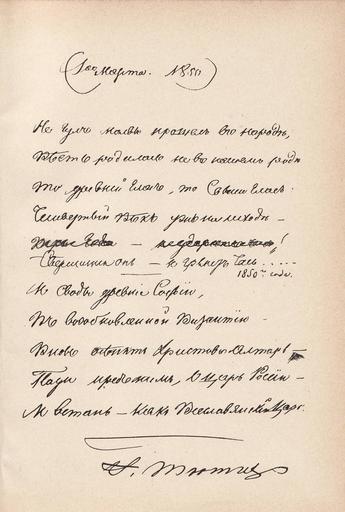 (1го Марта. 1850)
Не гулъ молвы прошелъ въ народѣ,
Вѣсть родилась не въ нашемъ родѣ
То древній гласъ, то Свыше гласъ:
Четвертый вѣкъ ужъ на исходѣ –
Свершится онъ – и грянетъ часъ.....
1850го года.
И Своды древніе Софіи,
Въ возобновленной Византіи –
Вновь осѣнятъ Христовъ Алтарь
Пади предъ нимъ, О Царь Россіи –
И встань – какъ Всеславянскій Царь.
Ѳ. Тютчевъ